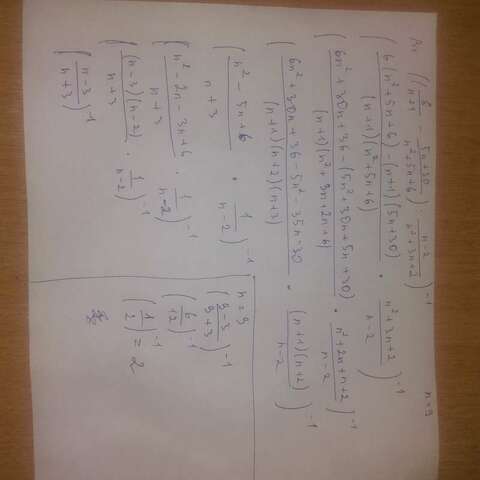 ((6/(n+1) - (5n+30)/(n²+5n+6)) : (n-2)/(n²+3n+2))⁻¹ n=9
((6(n²+5n+6)-(n+1)(5n+30))/((n+1)(n²+5n+6)) · (n²+3n+2)/(n-2))⁻¹
((6n²+30n+36-(5n²+30n+5n+30))/((n+1)(n²+3n+2n+6)) · (n²+2n+n+2)/(n-2))⁻¹
((6n²+30n+36-5n²-35n-30)/((n+1)(n+2)(n+3)) · ((n+1)(n+2))/(n-2))⁻¹
((n²-5n+6)/(n+3) · 1/(n-2))⁻¹
((n²-2n-3n+6)/(n+3) · 1/(n-2))⁻¹
(((n-3)(n-2))/(n+3) · 1/(n-2))⁻¹
((n-3)/(n+3))⁻¹
n=9
((9-3)/(9+3))⁻¹
(6/12)⁻¹
(1/2)⁻¹ = 2